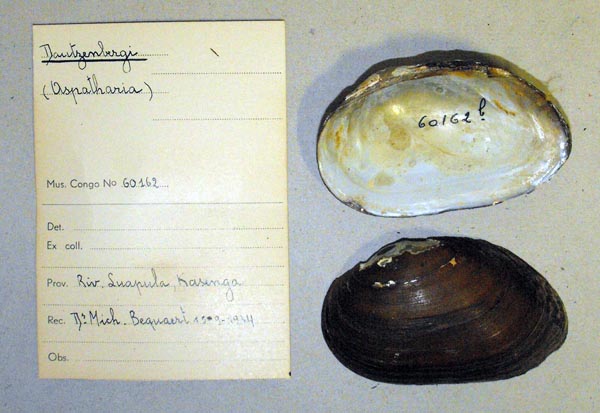 Dautzenbergi
(Aspatharia)
Mus. Congo No 60162
Det.
Ex coll.
Prov. Riv. Luapula, Kasenga
Rec. Dr Mich. Bequaert
Obs.
60162 b